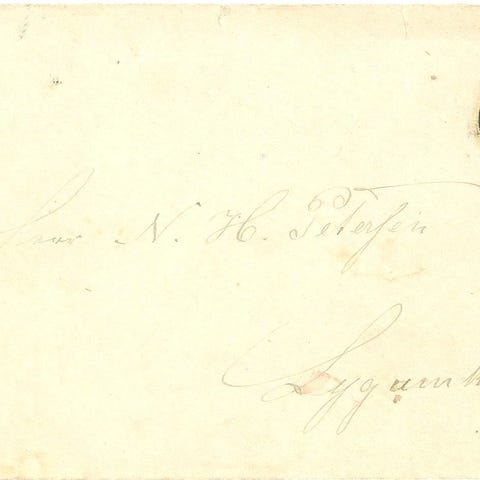 Herr N. H. Petersen
Lygumk